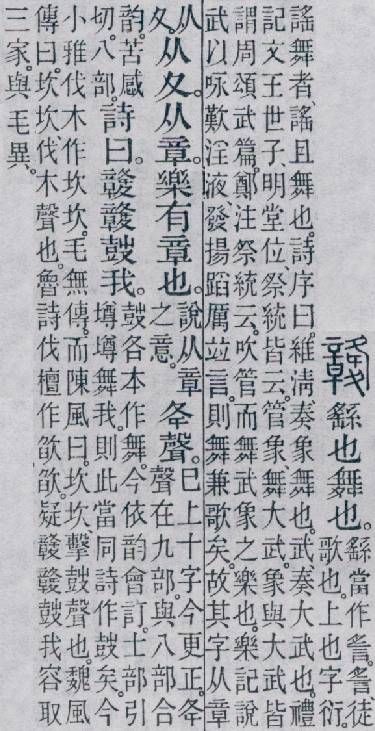 竷
繇也舞也。
繇當作䚻。䚻、徒
歌也。上也字衍。
謠舞者、謠且舞也。詩序曰。維淸、奏象舞也。武、奏大武也。禮
記文王世子、明堂位、祭統皆云。管象、舞大武。象與大武皆
謂周頌武篇。鄭注祭統云。吹管而舞武象之樂也。樂記說
武以咏歎淫液、發揚蹈厲竝言。則舞兼歌矣。故其字从章
从
夊。
从夊从章。樂有章也。
說从章
之意。
夅聲。
巳上十字今更正。夅
聲在九部。與八部合
韵。苦感
切。八部。
詩曰。竷竷鼓我。
鼓各本作舞。今依韵會訂。士部引
墫墫舞我。則此當同詩作鼓矣。今
小雅伐木作坎坎。毛無傳。而陳風曰。坎坎、擊鼓聲也。魏風
傳曰。坎坎、伐木聲也。魯詩伐檀作欿欿。疑竷竷鼓我容取
三家。與毛異。